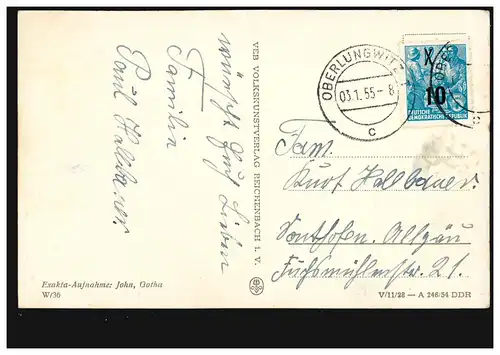 wünscht Euch Lieben
Familie
Paul Hallbauer
Exakta-Aufnahme: John, Gotha
W/36
VEB VOLKSKUNSTVERLAG REICHENBACH I. V.
OBERLUNGWITZ
03.1.55-8
c
X
10
DEUTSCHE
DEMOKRATISCHE REPUBLIK
OBER
c
Fam.
Kurt Hallbauer.
Sonthofen. Allgäu
Fuchsmühlenstr. 21.
V/11/28 — A 246/54 DDR